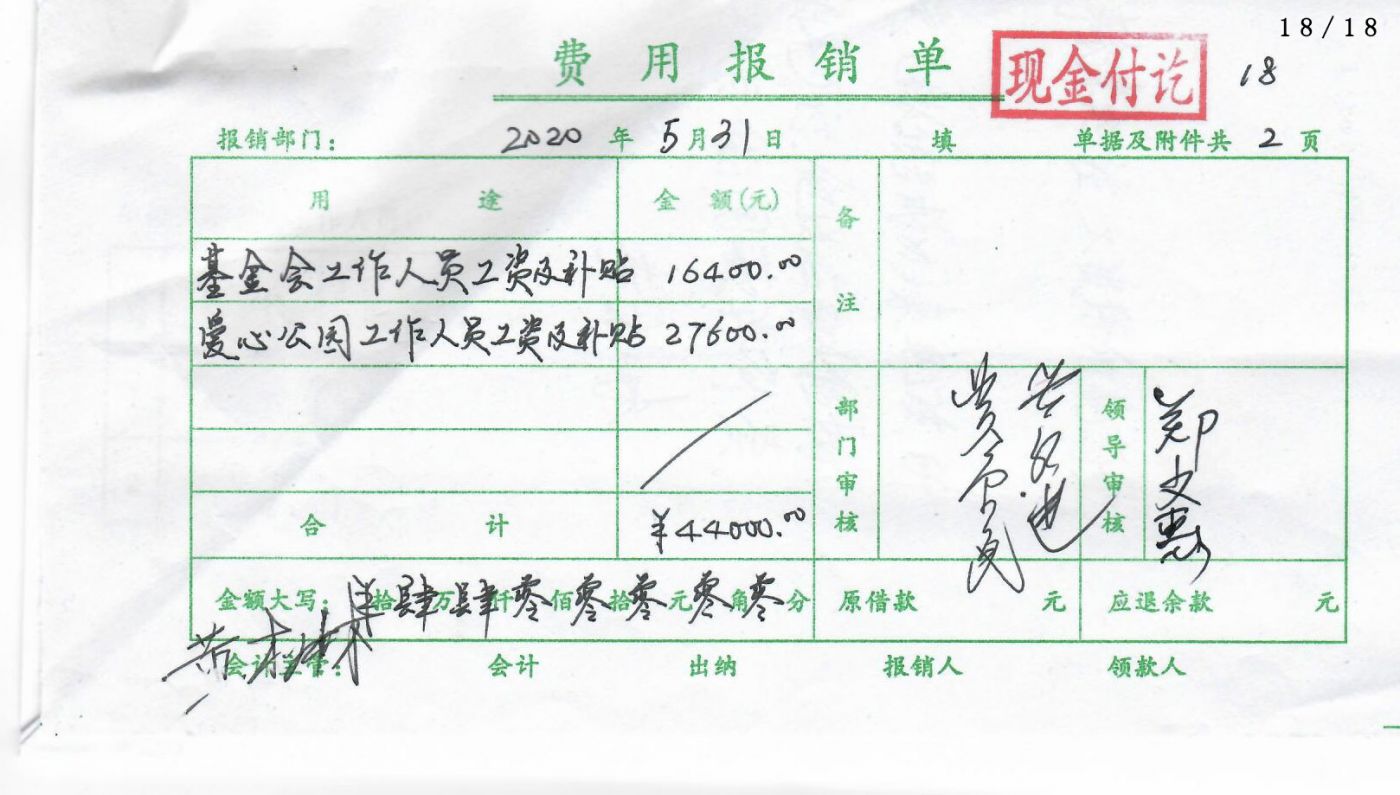 18/18
费用报销单
现金付讫
18
报销部门: 2020 年 5 月 31 日 填 单据及附件共 2 页
用途 金额(元) 备注
基金会工作人员工资及补贴 16400.00
爱心公园工作人员工资及补贴 27600.00
部门审核 领导审核
合计 ¥44000.00
金额大写: 拾肆万肆仟零佰零拾零元零角零分 原借款 元 应退余款 元
会计主管: 会计 出纳 报销人 领款人